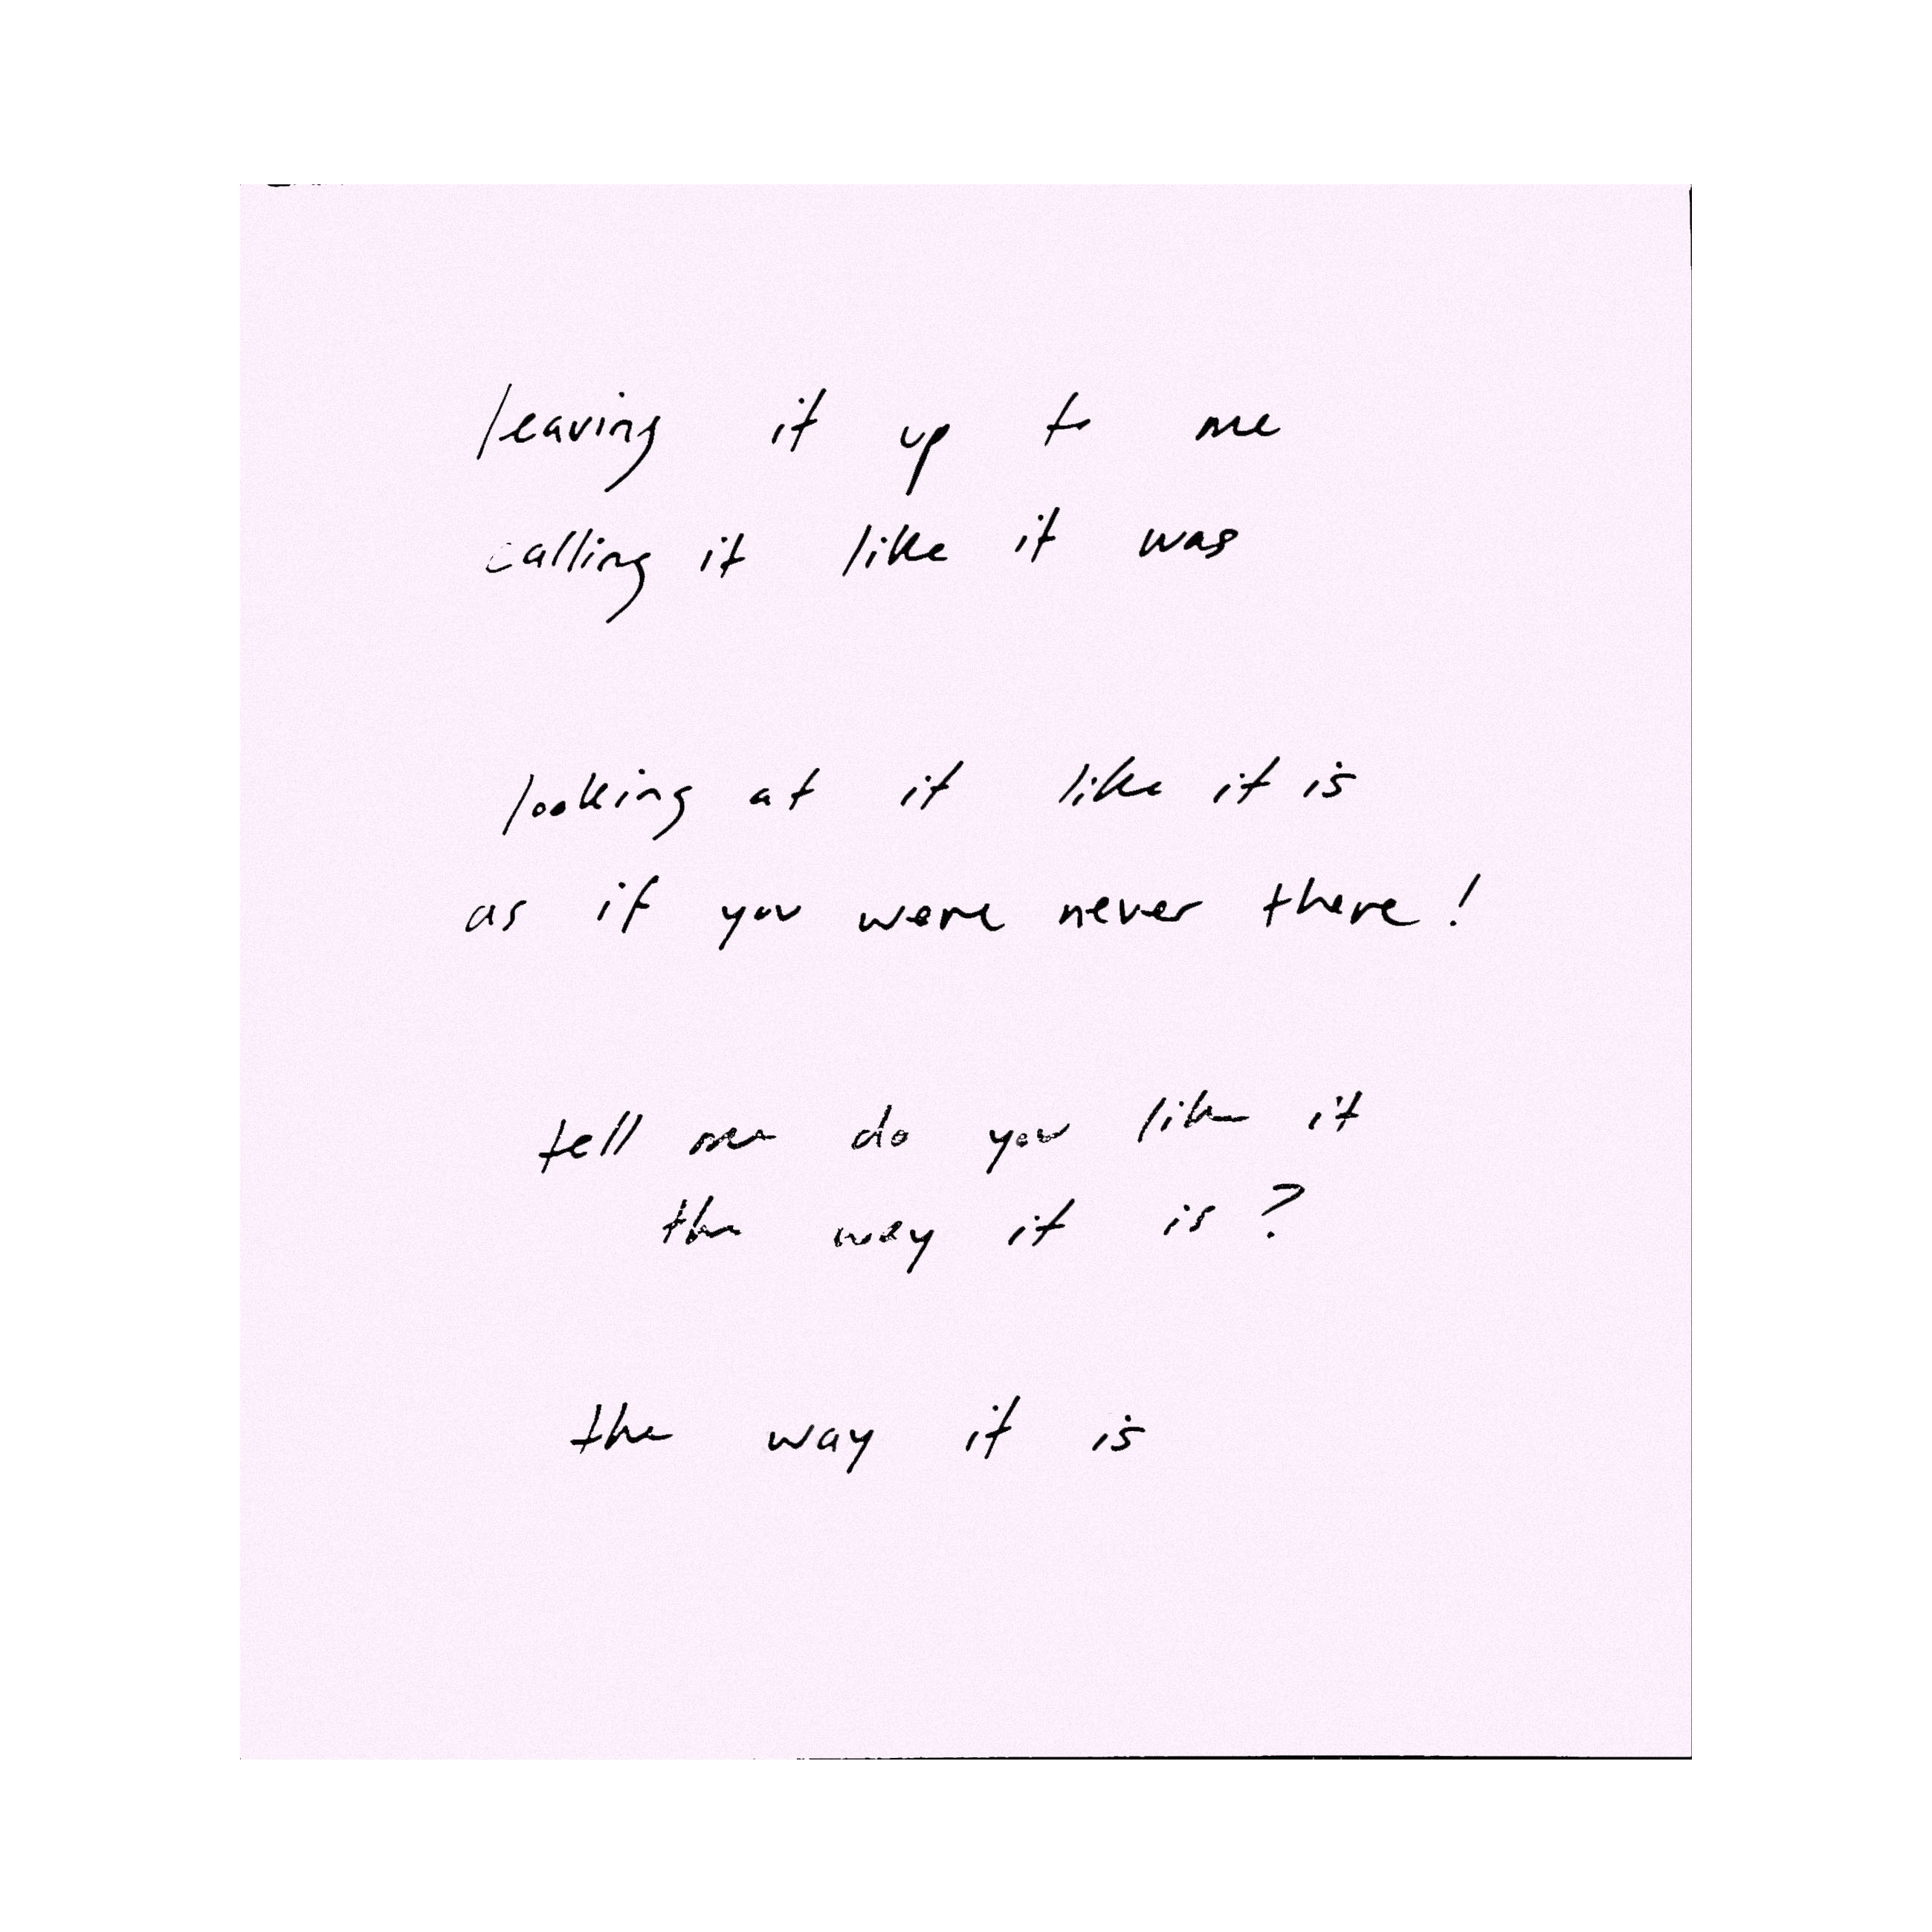 leaving it up to me
calling it like it was
looking at it like it is
as if you were never there!
tell me do you like it
the way it is?
the way it is